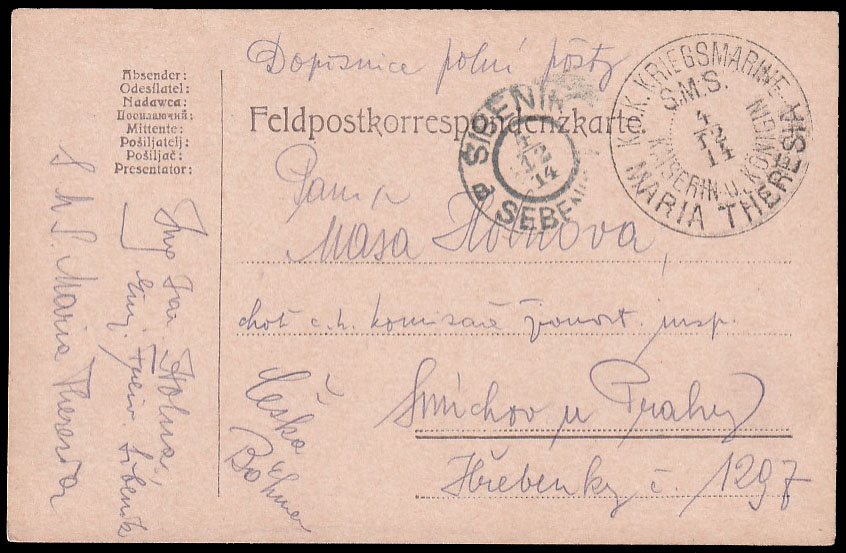 Dopisnice polní pošty
Feldpostkorrespondenzkarte
Absender:
Odesílatel:
Nadawca:
Посилаючий:
Mittente:
Pošiljatelj:
Pošiljač:
Presentator:
K.U.K. KRIEGSMARINE
S.M.S.
4
12
14
KAISERIN U. KÖNIGIN
MARIA THERESIA
SIBENIK
4
12
14
a SEBENICO
Paní
Máša Holnova,
choť c.k. komisaře živnost. insp.
Smíchov u Prahy
Hřebenky č. 1297
Česko
Böhmen
Ing Ivan Holna,
Šibenik
S M S. Maria Theresia